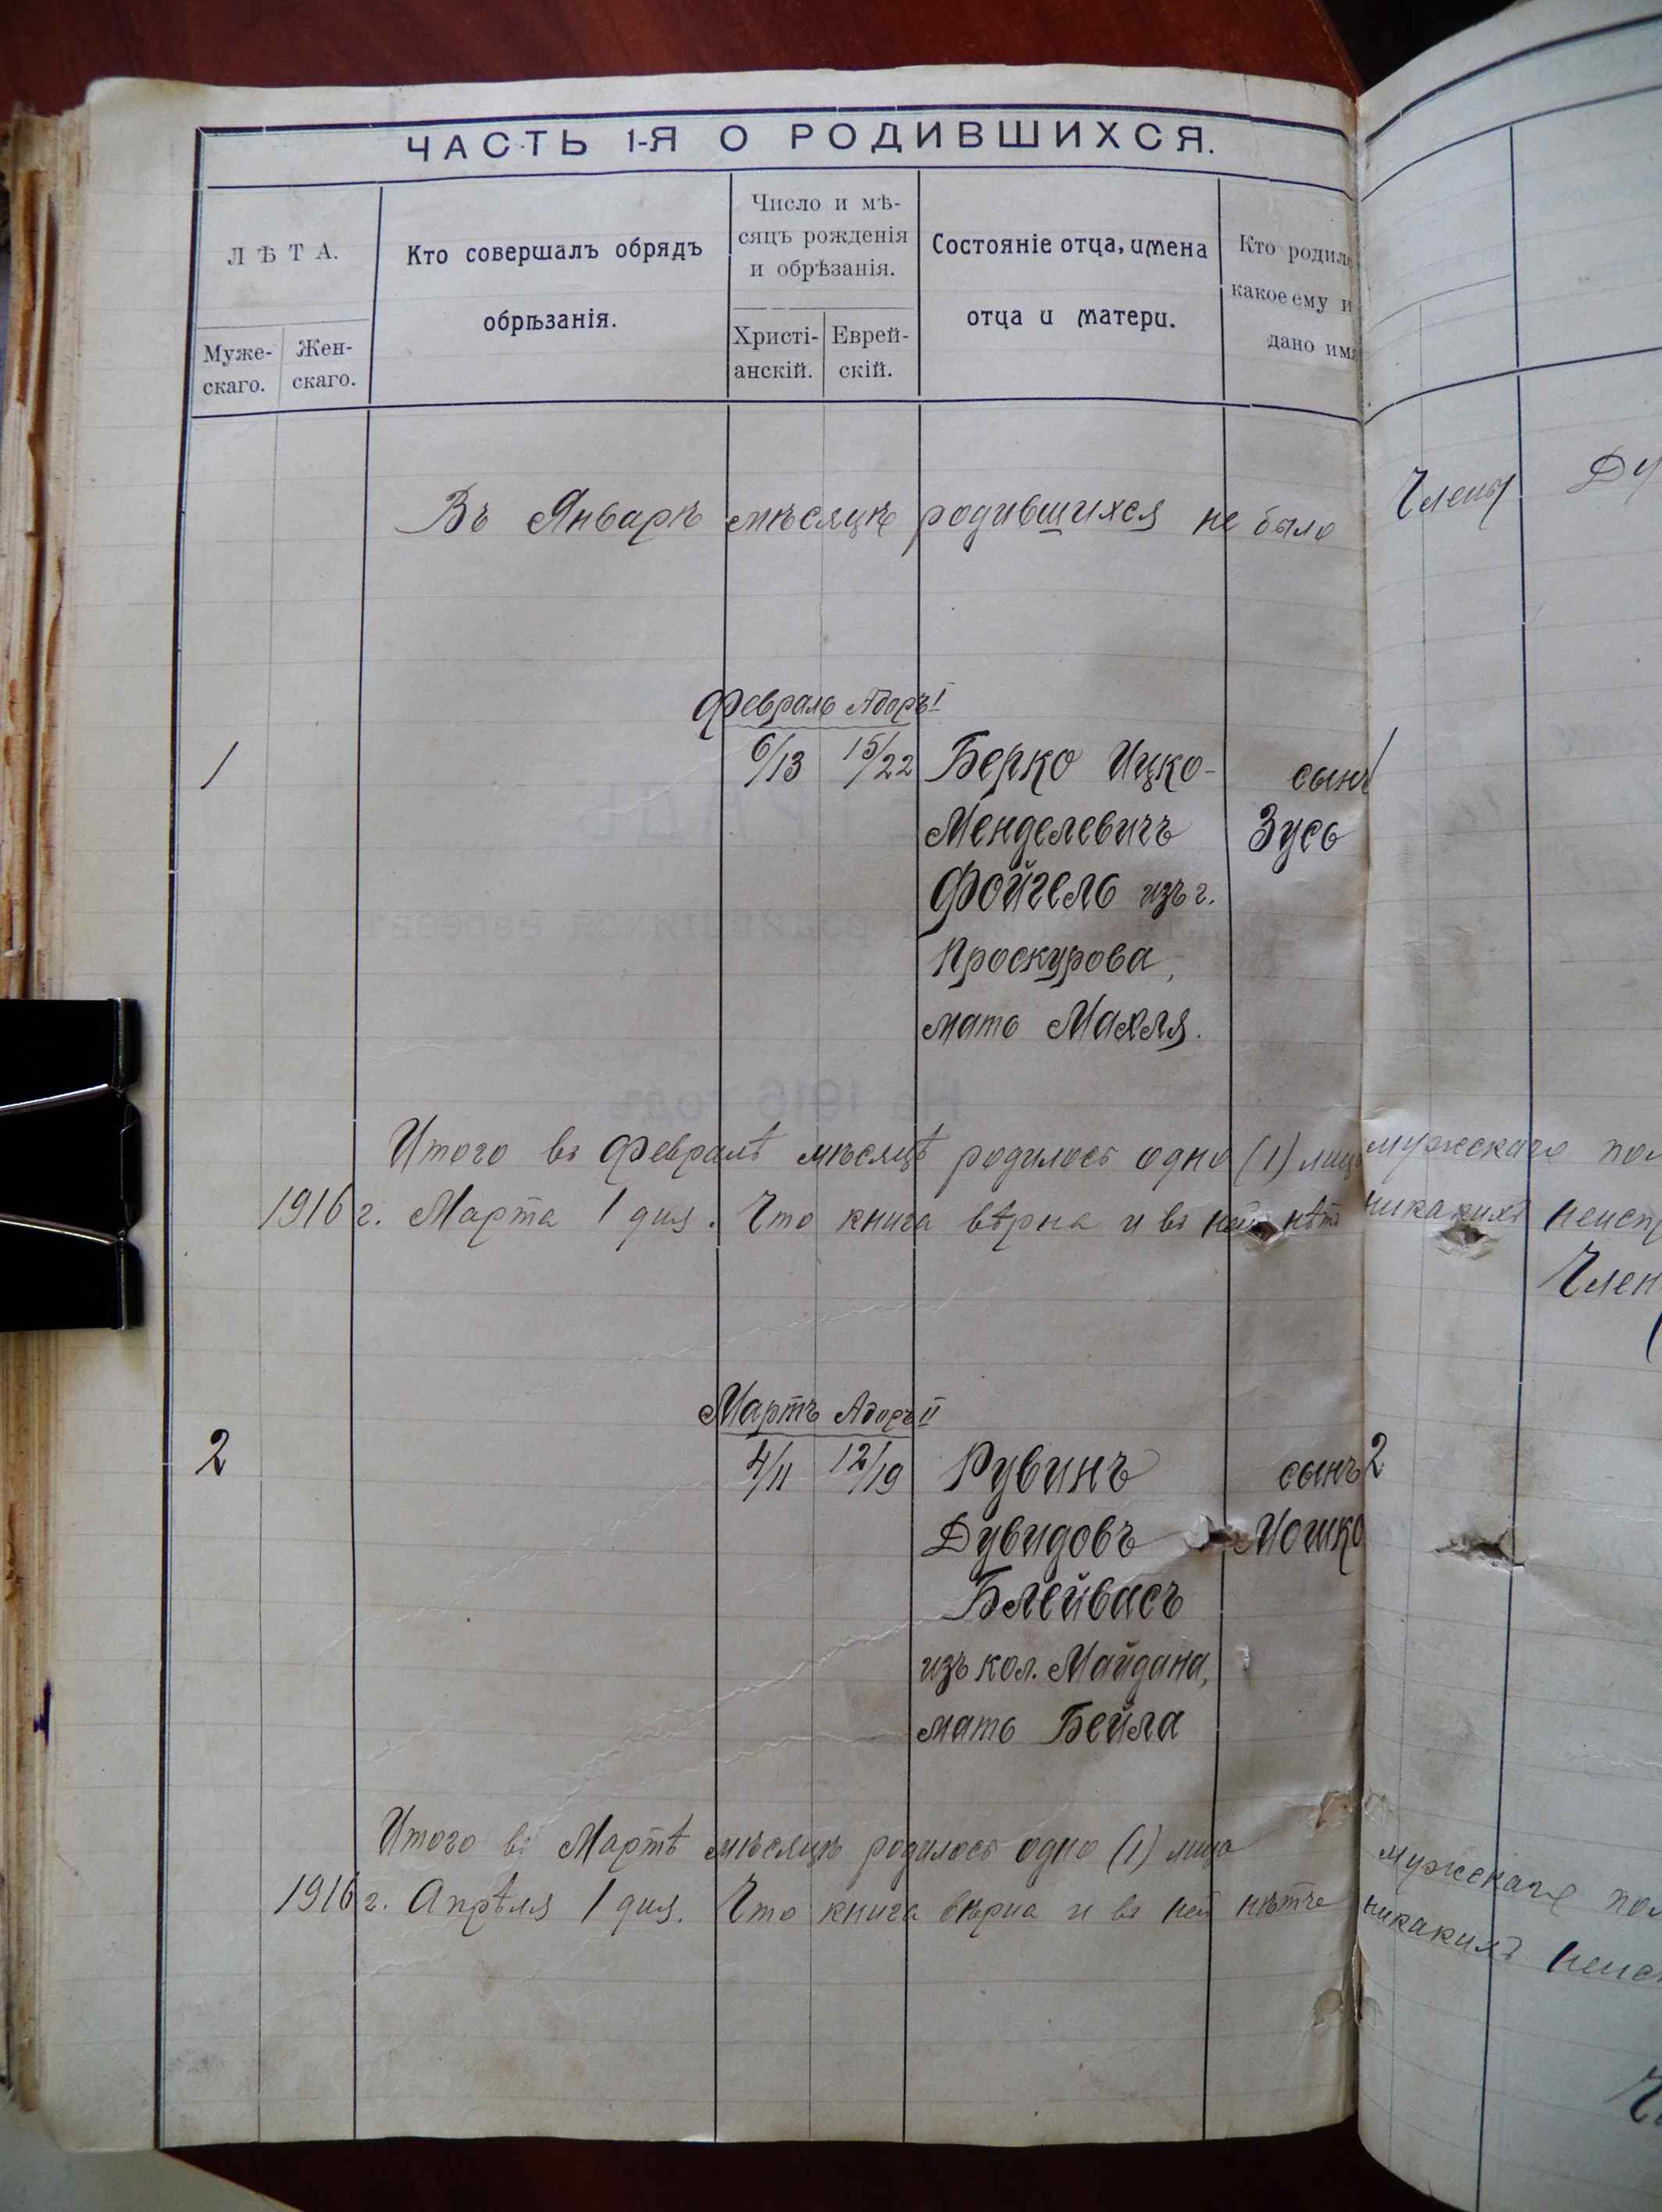 ЧАСТЬ 1-Я О РОДИВШИХСЯ.
ЛѢТА.
Муже-
скаго.
Жен-
скаго.
Кто совершалъ обрядъ
обрѣзанія.
Число и мѣ-
сяцъ рожденія
и обрѣзанія.
Христі-
анскій.
Еврей-
скій.
Состояніе отца, имена
отца и матери.
Кто родил
какое ему и
дано им
Въ Январѣ мѣсяцѣ родившихся не было
Члены Ду
Февраль Адоръ I
1 6/13 15/22 Берко Ицко- сынъ 1
Менделевичъ Зусь
Фойгель изъ г.
Проскурова,
мать Махля.
На 1916 годъ
Итого въ Февралѣ мѣсяцѣ родилось одно (1) лицо мужскаго пол
1916 г. Марта 1 дня. Что книга вѣрна и въ ней нѣтъ никакихъ неиспр
Член
Мартъ Адоръ II
2 4/11 12/19 Рувинъ сынъ 2
Дувидовъ Мошко
Блейвасъ
изъ кол. Майдана,
мать Бейла
Итого въ Мартѣ мѣсяцѣ родилось одно (1) лицо мужскаго пол
1916 г. Апрѣля 1 дня. Что книга вѣрна и въ ней нѣтъ никакихъ неис